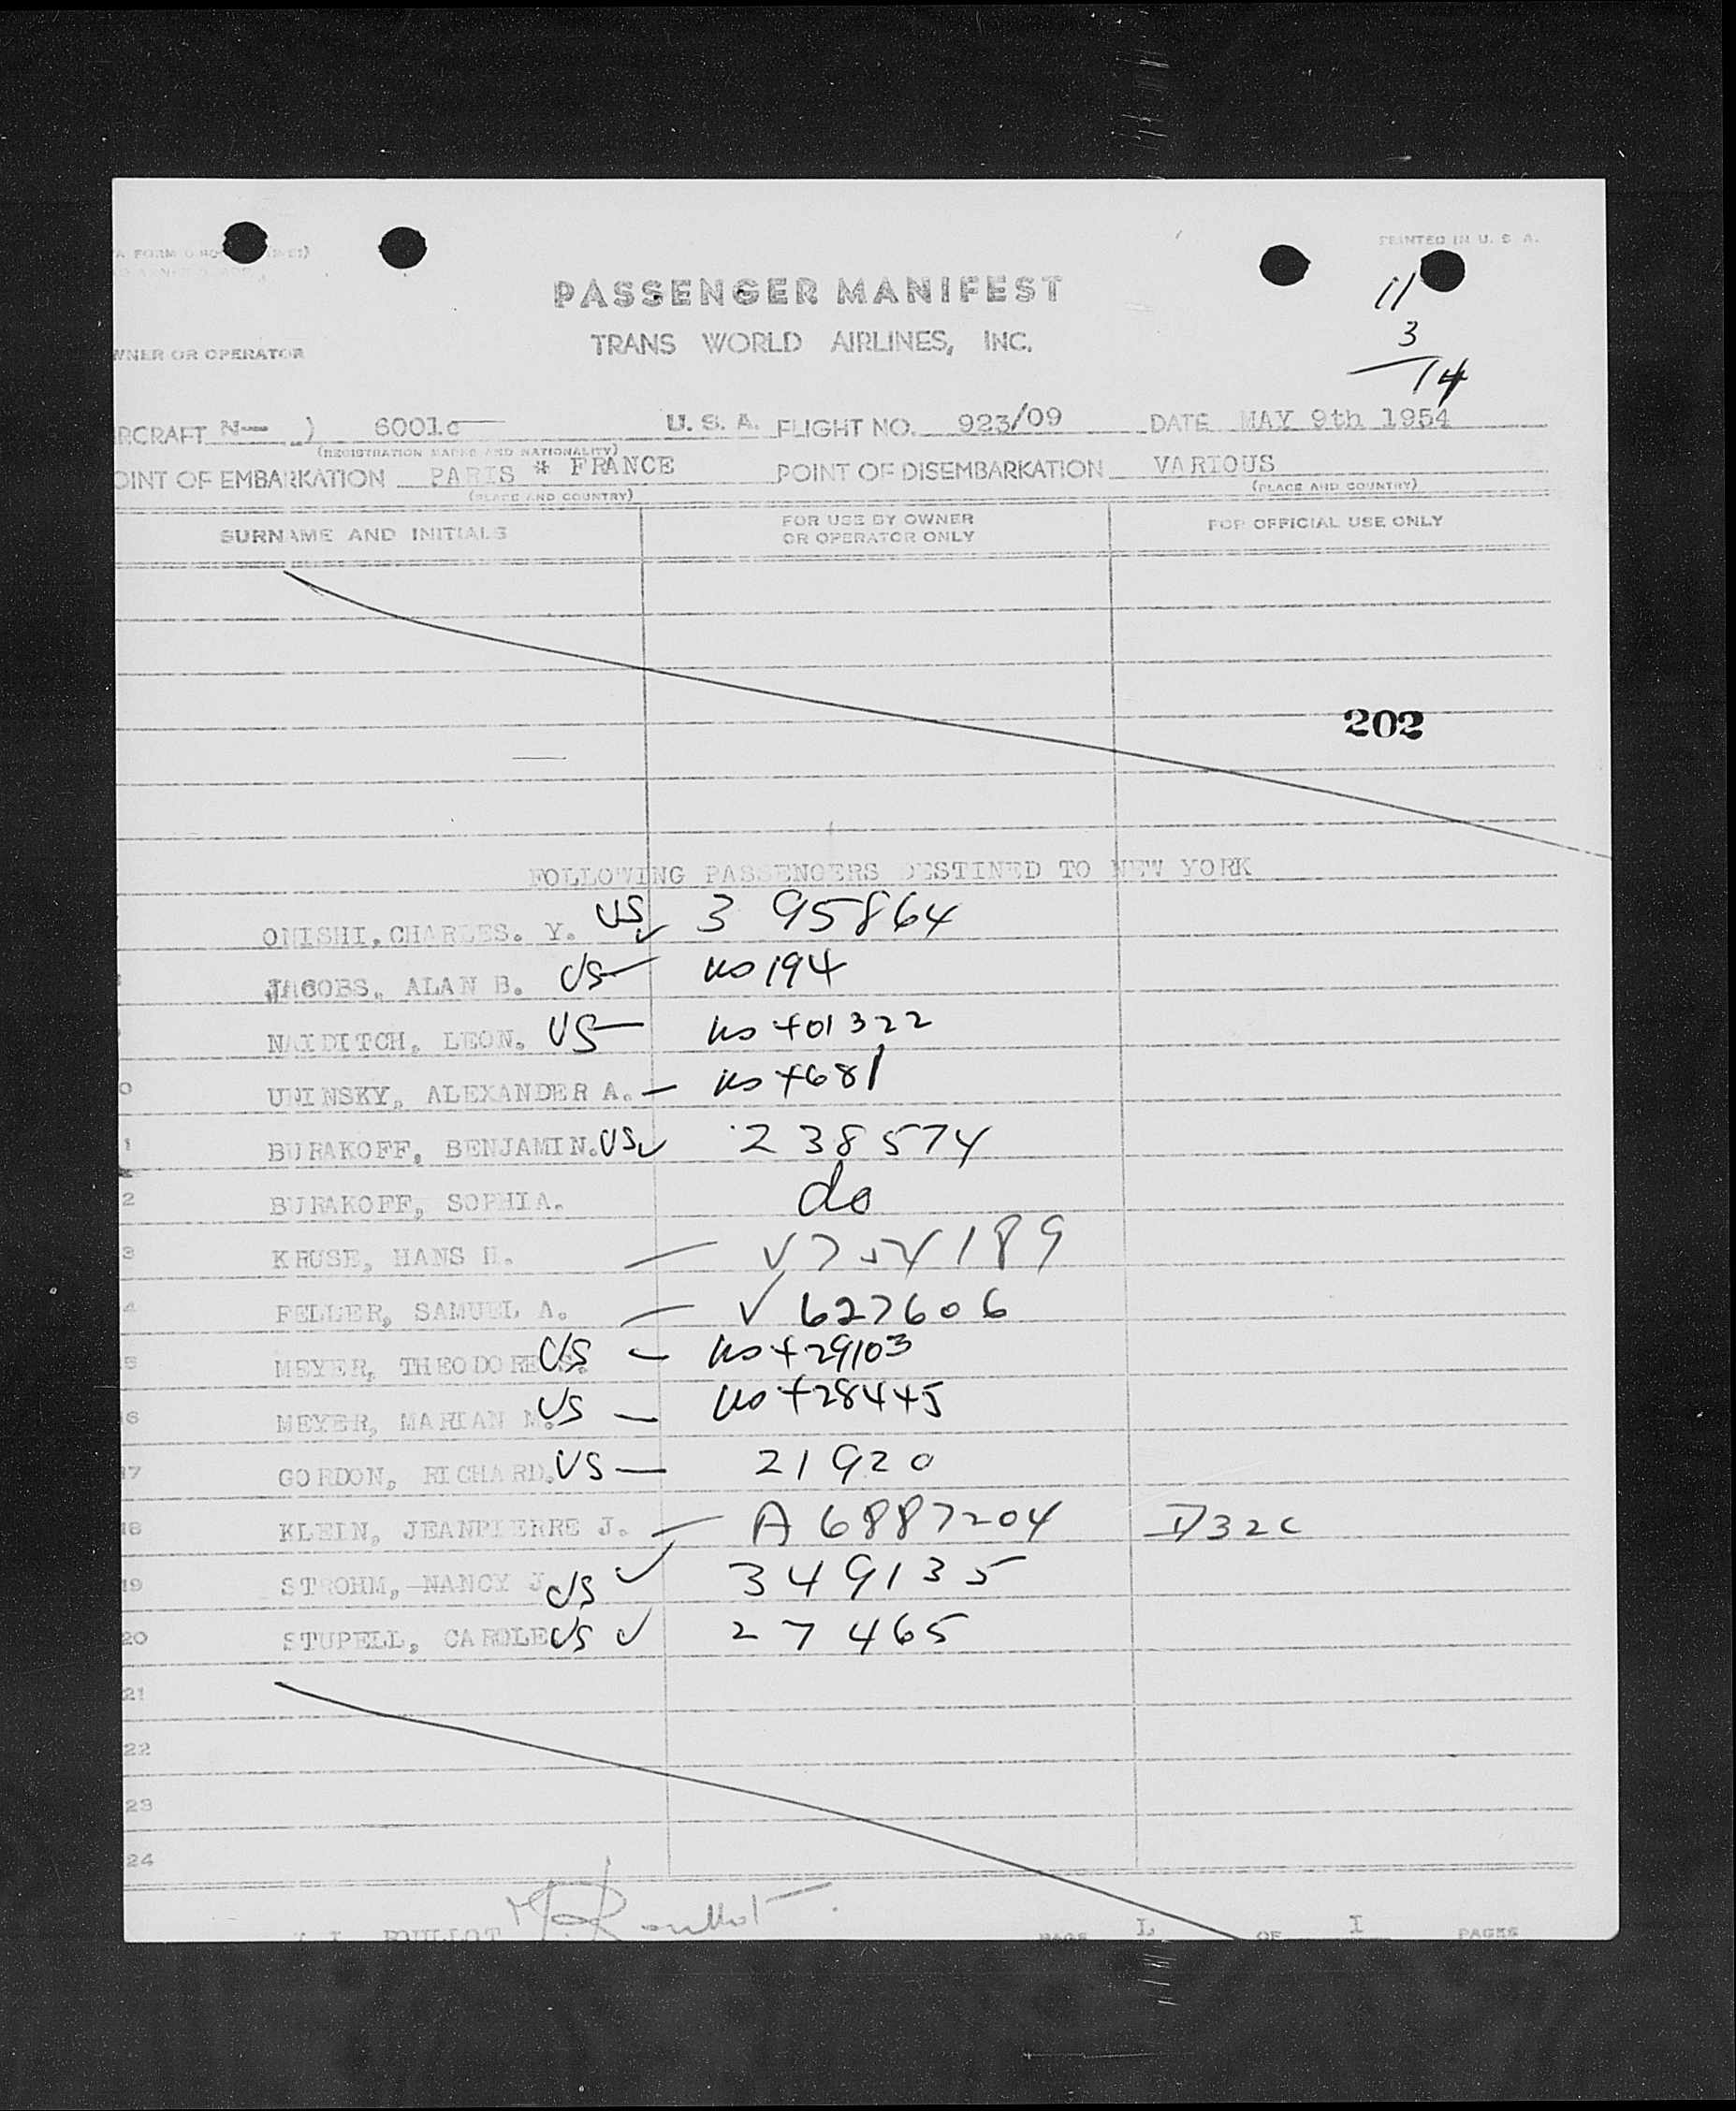 PRINTED IN U. S. A.
11
PASSENGER MANIFEST
3
TRANS WORLD AIRLINES, INC.
WNER OR OPERATOR
14
RCRAFT N— ) 6001c U. S. A. FLIGHT NO. 923/09 DATE MAY 9th 1954
(REGISTRATION MARKS AND NATIONALITY)
OINT OF EMBARKATION PARIS * FRANCE POINT OF DISEMBARKATION VARIOUS
(PLACE AND COUNTRY) (PLACE AND COUNTRY)
SURNAME AND INITIALS FOR USE BY OWNER OR OPERATOR ONLY FOR OFFICIAL USE ONLY
202
FOLLOWING PASSENGERS DESTINED TO NEW YORK
ONISHI, CHARLES. Y. US ✓ 3 95864
JACOBS, ALAN B. US — no 194
NAIDITCH, LEON. US — no +01322
UNINSKY, ALEXANDER A. — no +681
1 BURAKOFF, BENJAMIN. US ✓ 238574
2 BURAKOFF, SOPHIA. do
3 KRUSE, HANS H. — V754189
4 FELLER, SAMUEL A. — V 627606
5 MEYER, THEODORE S. US — no +29103
6 MEYER, MARIAN M. US — no +28445
17 GORDON, RICHARD. US — 21920
18 KLEIN, JEANPIERRE J. — A 6887204
19 STROHM, NANCY J US ✓ 349135
20 STUPELL, CAROLE US ✓ 27465
21
22
23
24
ROULLOT
PAGE I OF I PAGES